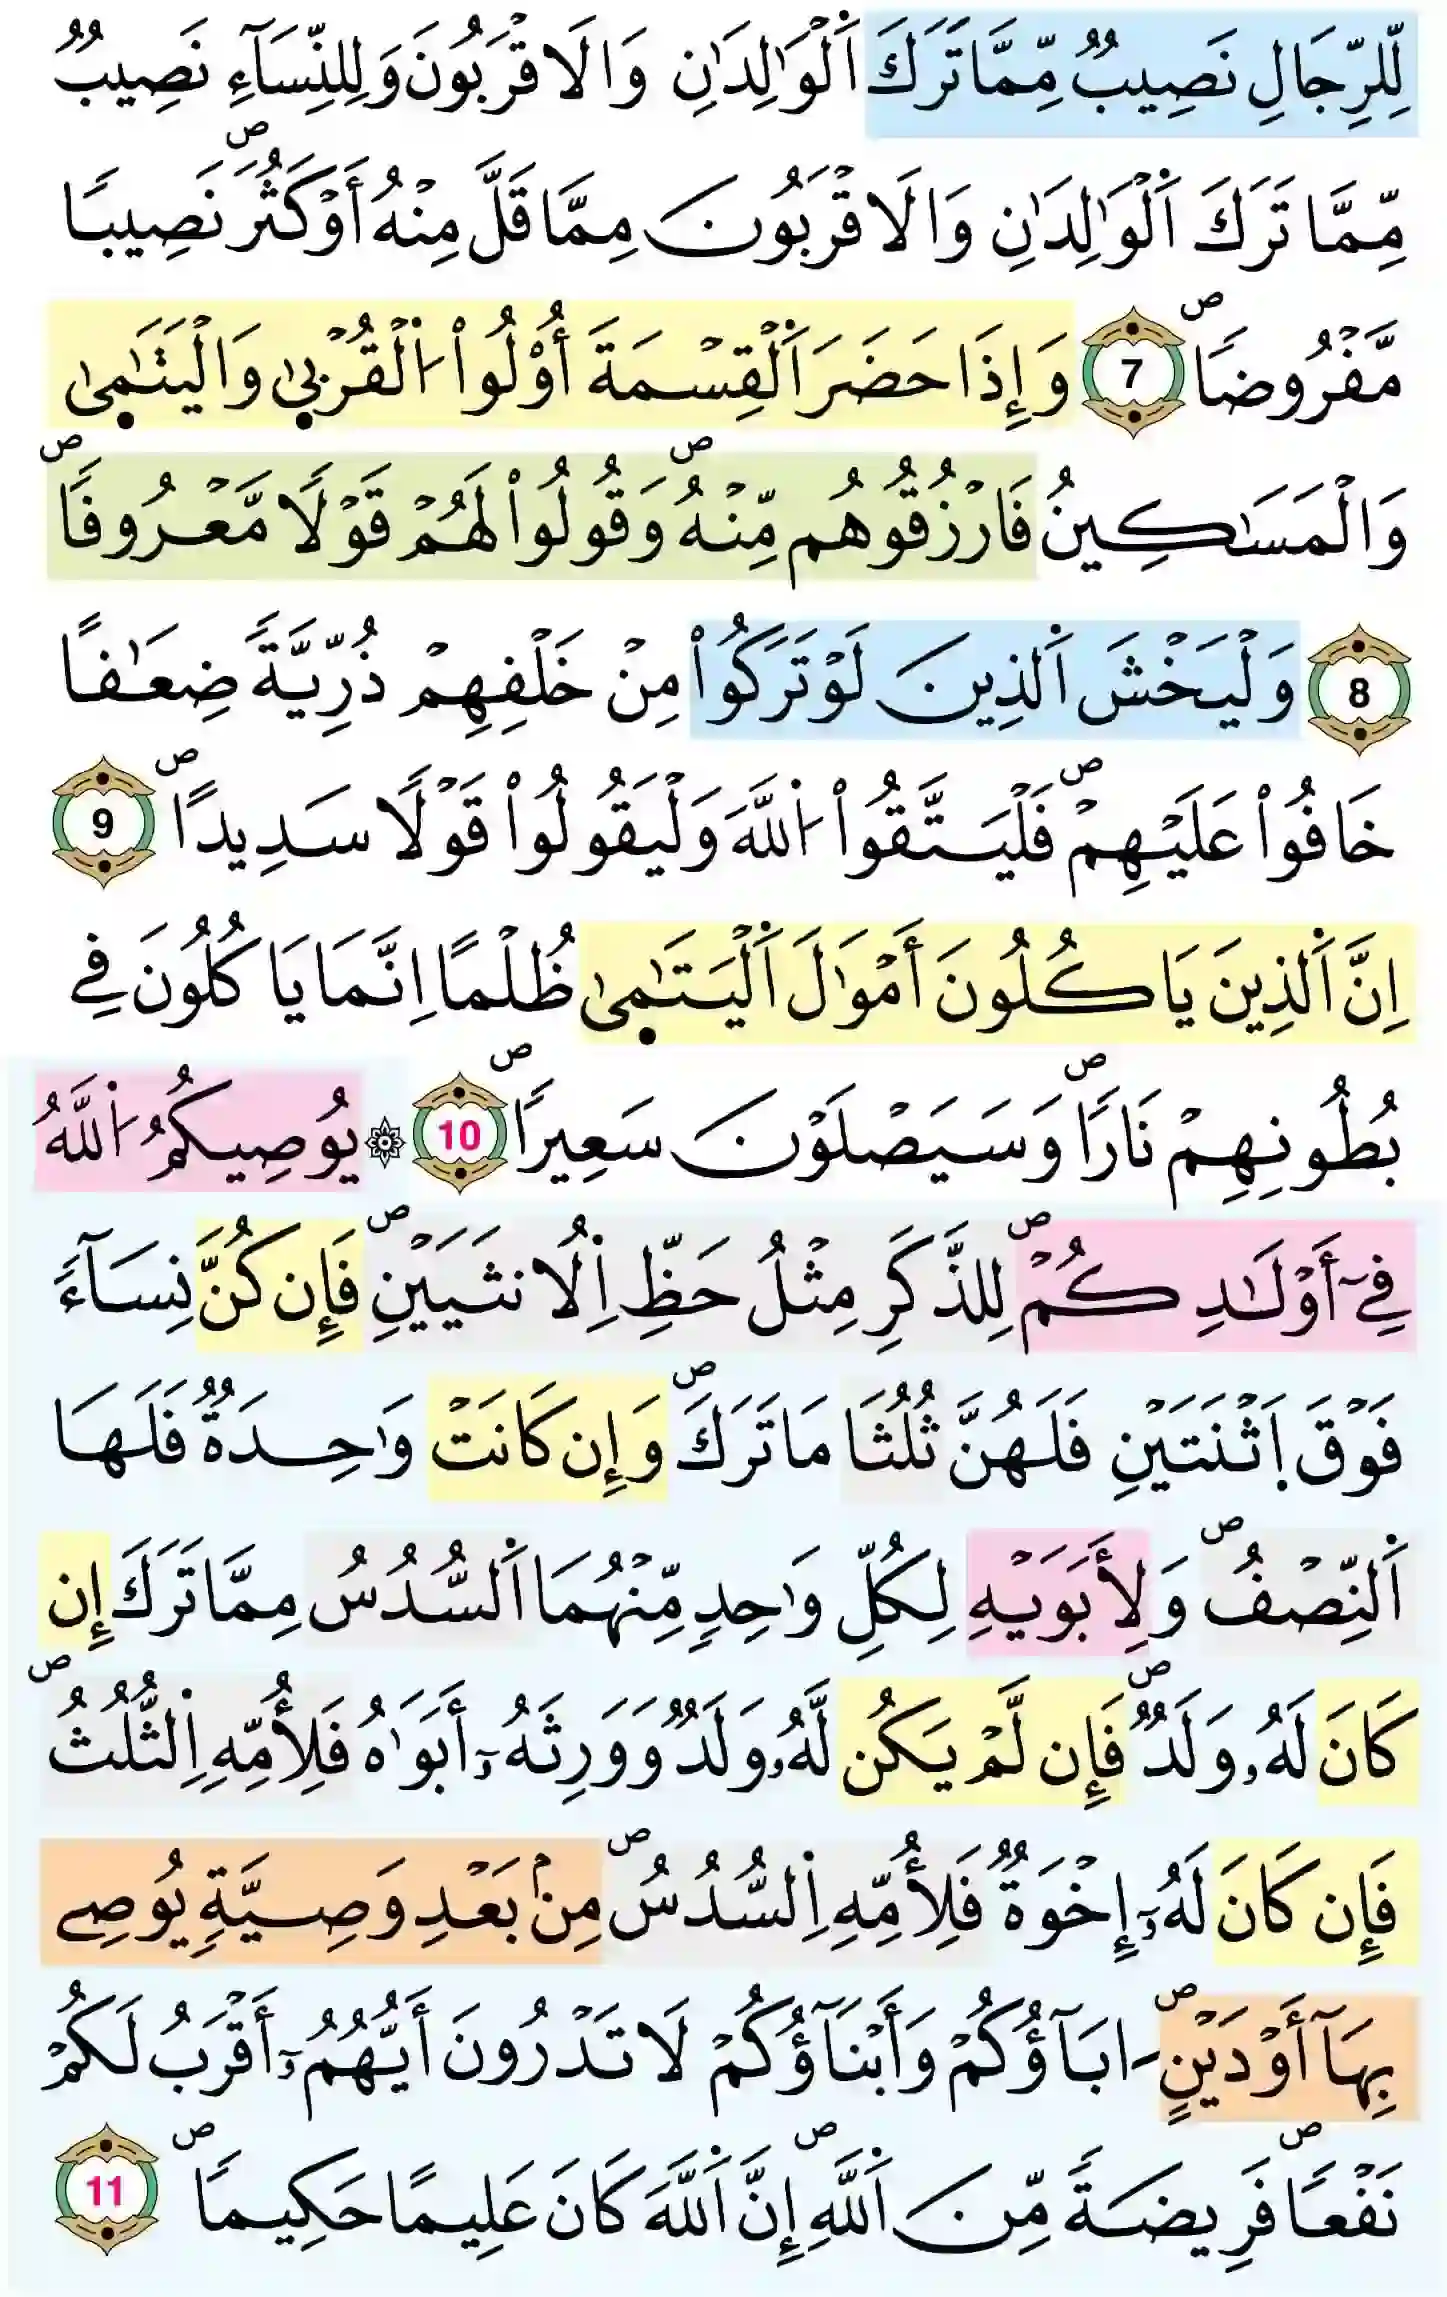 لِّلرِّجَالِ نَصِيبٌ مِّمَّا تَرَكَ اَ۬لْوَٰلِدَٰنِ وَالَاقْرَبُونَ وَلِلنِّسَآءِ نَصِيبٌ
مِّمَّا تَرَكَ اَ۬لْوَٰلِدَٰنِ وَالَاقْرَبُونَ مِمَّا قَلَّ مِنْهُ أَوْ كَثُرَۖ نَصِيباً
مَّفْرُوضاًۖ 7 وَإِذَا حَضَرَ اَ۬لْقِسْمَةَ أُوْلُواْ اُ۬لْقُرْب۪يٰ وَالْيَتَٰم۪يٰ
وَالْمَسَٰكِينُ فَارْزُقُوهُم مِّنْهُۖ وَقُولُواْ لَهُمْ قَوْلاً مَّعْرُوفاًۖ
8 وَلْيَخْشَ اَ۬لذِينَ لَوْ تَرَكُواْ مِنْ خَلْفِهِمْ ذُرِّيَّةً ضِعَٰفاً
خَافُواْ عَلَيْهِمْۖ فَلْيَتَّقُواْ اُ۬للَّهَ وَلْيَقُولُواْ قَوْلاً سَدِيداًۖ 9
اِنَّ اَ۬لذِينَ يَاكُلُونَ أَمْوَٰلَ اَ۬لْيَتَٰم۪يٰ ظُلْماً اِنَّمَا يَاكُلُونَ فِے
بُطُونِهِمْ نَاراًۖ وَسَيَصْلَوْنَ سَعِيراًۖ 10 ۞ يُوصِيكُمُ اُ۬للَّهُ
فِےٓ أَوْلَٰدِكُمْۖ لِلذَّكَرِ مِثْلُ حَظِّ اِ۬لُانثَيَيْنِۖ فَإِن كُنَّ نِسَآءً
فَوْقَ اَ۪ثْنَتَيْنِ فَلَهُنَّ ثُلُثَا مَا تَرَكَۖ وَإِن كَانَتْ وَٰحِدَةٌ فَلَهَا
اَ۬لنِّصْفُۖ وَلِأَبَوَيْهِ لِكُلِّ وَٰحِدٍ مِّنْهُمَا اَ۬لسُّدُسُ مِمَّا تَرَكَ إِن
كَانَ لَهُۥ وَلَدٌۖ فَإِن لَّمْ يَكُن لَّهُۥ وَلَدٌ وَوَرِثَهُۥٓ أَبَوَٰهُ فَلِأُمِّهِ اِ۬لثُّلُثُۖ
فَإِن كَانَ لَهُۥٓ إِخْوَةٌ فَلِأُمِّهِ اِ۬لسُّدُسُۖ مِنۢ بَعْدِ وَصِيَّةٍ يُوصِے
بِهَآ أَوْ دَيْنٍۖ اٰبَآؤُكُمْ وَأَبْنَآؤُكُمْ لَا تَدْرُونَ أَيُّهُمُۥٓ أَقْرَبُ لَكُمْ
نَفْعاًۖ فَرِيضَةً مِّنَ اَ۬للَّهِۖ إِنَّ اَ۬للَّهَ كَانَ عَلِيماً حَكِيماًۖ 11